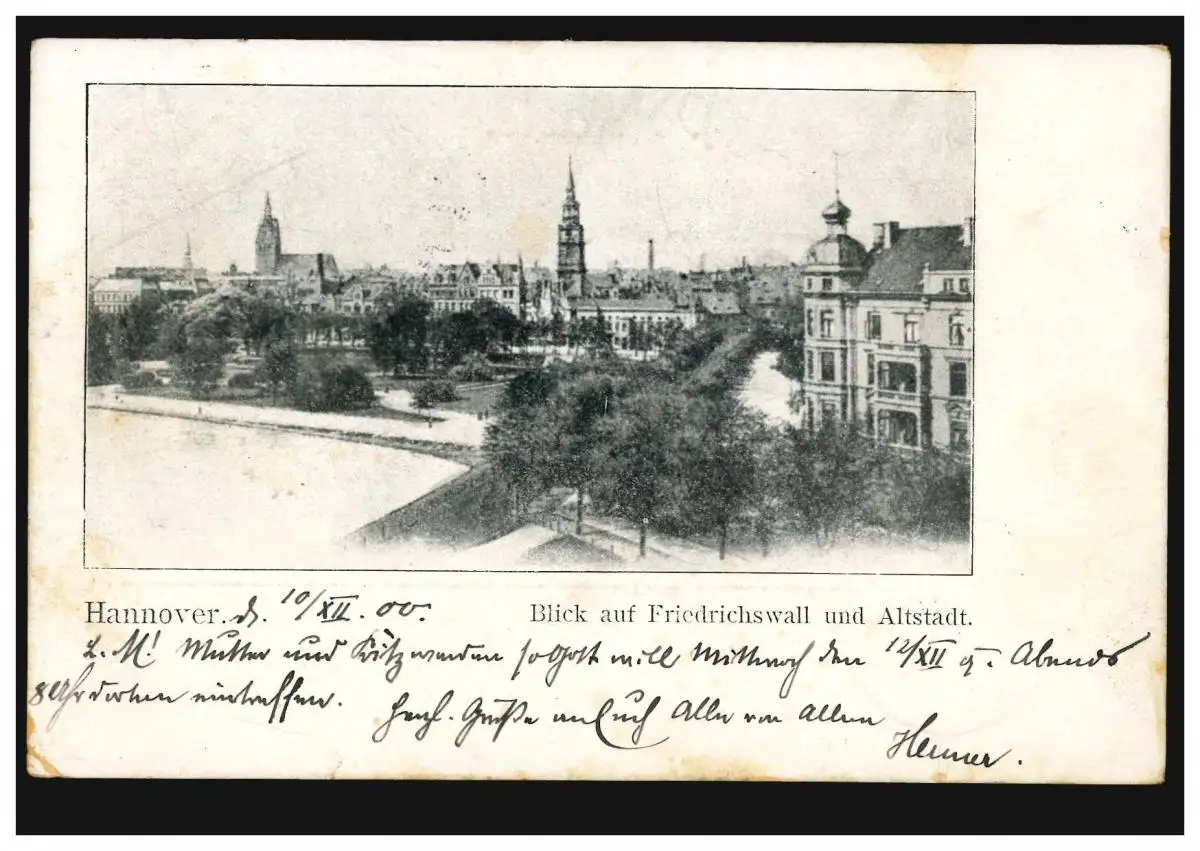 Hannover. d. 10/XII. 00. Blick auf Friedrichswall und Altstadt.
L. M! Mutter und Fritz werden so Gott will Mittwoch den 12/XII Abends
8 Uhr dorten eintreffen. Herzl. Grüße an Euch Alle von Allen